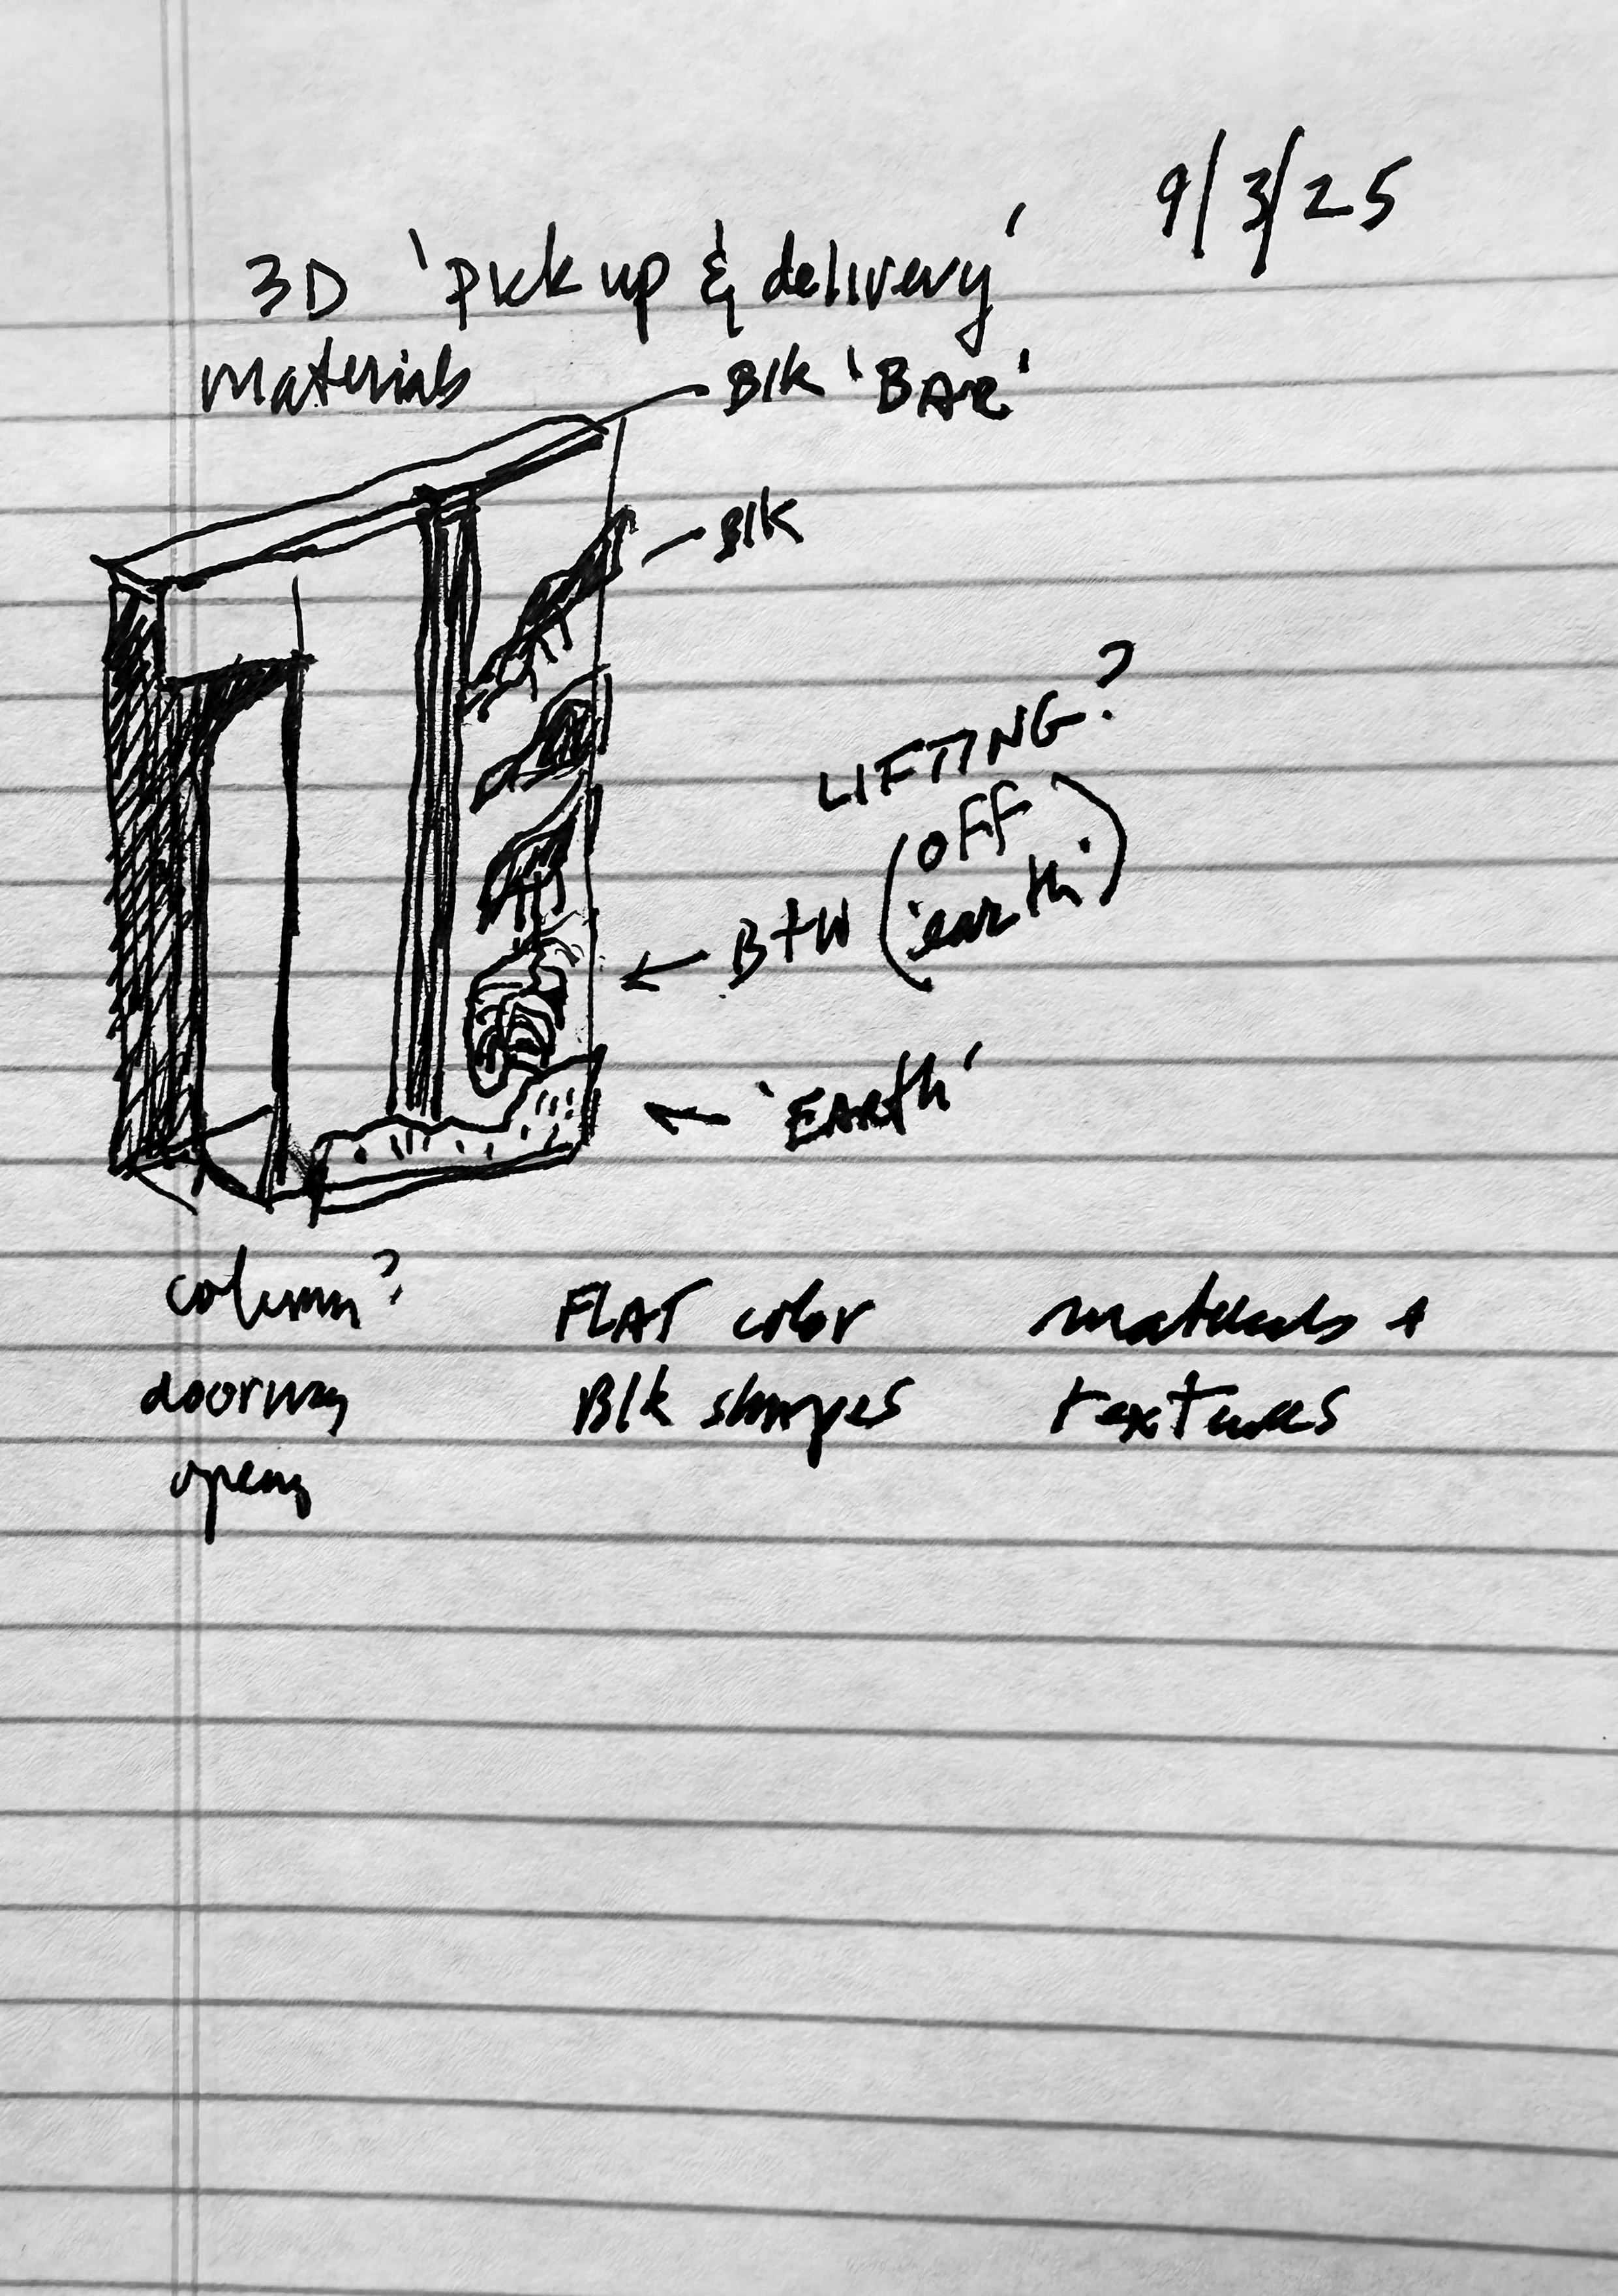 9/3/25
3D 'Pick up & delivery'
materials
Blk 'BAR'
Blk
LIFTING?
B+W (off 'earth')
'EARTH'
column? FLAT color materials +
doorway Blk shapes textures